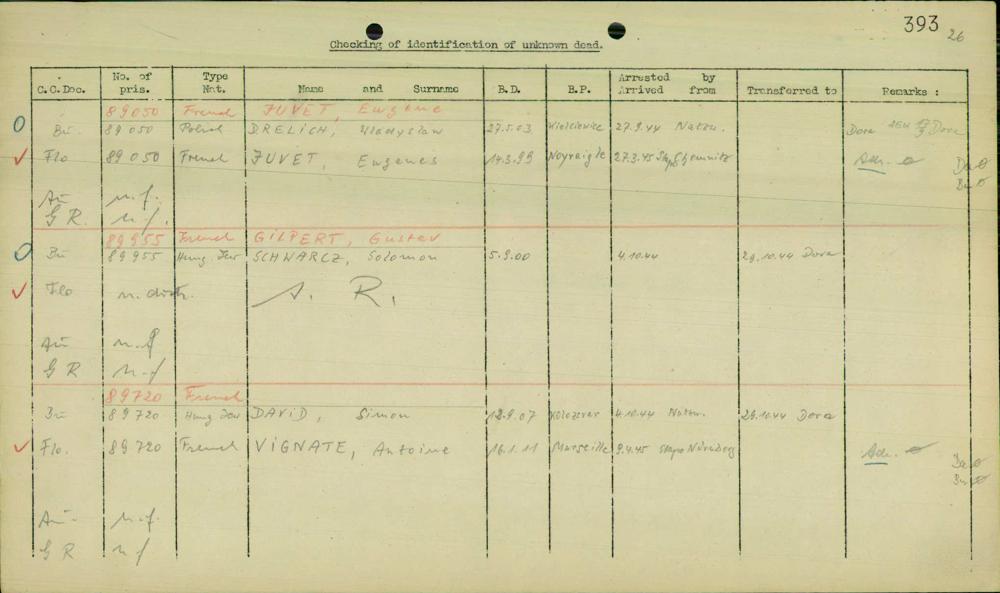 393
26
Checking of identification of unknown dead.
C.C.Doc. No. of pris. Type Nat. Name and Surname B.D. B.P. Arrested by Arrived from Transferred to Remarks :
89050 French JUVET, Eugène
Bu 89050 Polish DRELICH, Wladyslaw 27.5.03 Kielciewice 27.9.44 Natzw. Dora Dora
Flo 89050 French JUVET, Eugenes 14.3.99 27.3.45 Stapo Chemnitz Adr.
Da
Bu
Au n.f.
G R. n.f.
89955 French GILPERT, Gustav
Bu 89955 Hung. Jew SCHWARCZ, Solomon 5.9.00 4.10.44 29.10.44 Dora
Flo n. distr. A. R.
Au n.f
G R n.f
89720 French
Bu 89720 Hung Jew DAVID, Simon 12.9.07 Kolozsvar 4.10.44 Natzw. 29.10.44 Dora
Flo. 89720 French VIGNATE, Antoine 16.1.11 Marseille 9.4.45 Stapo Nürnberg Adr.
Da
Bu
Au n.f.
G R n f